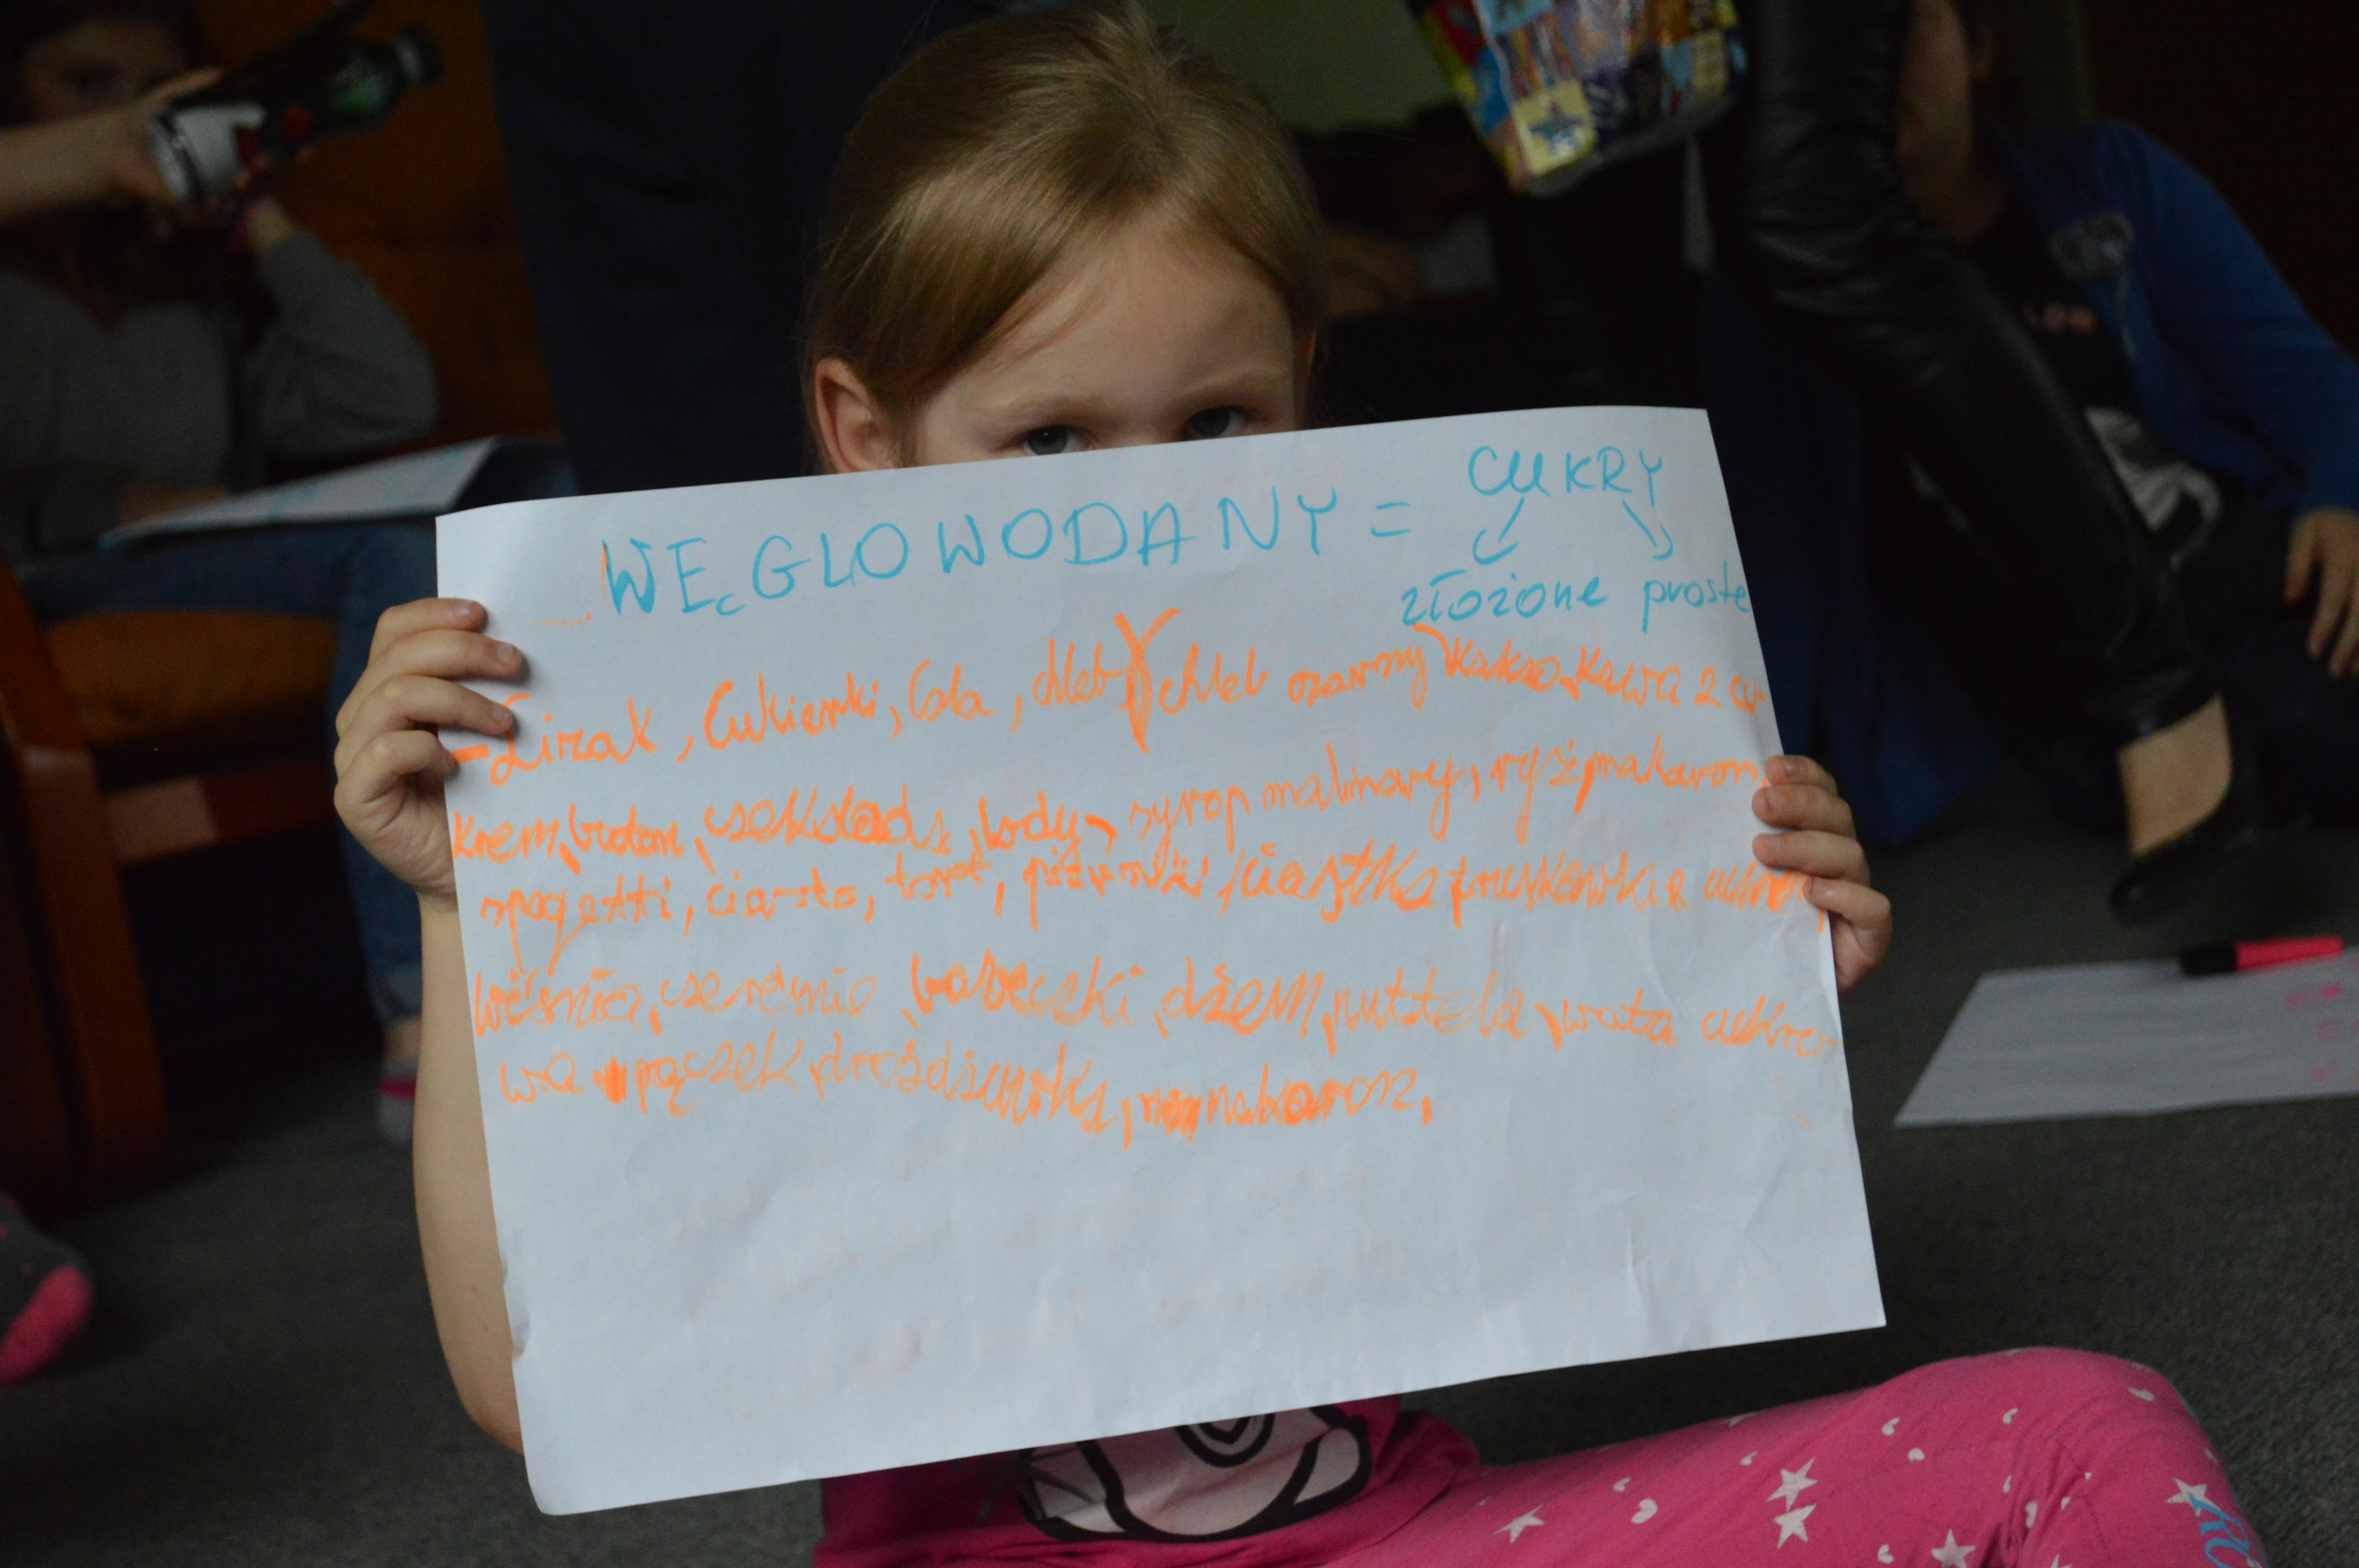 WĘGLOWODANY = CUKRY
złożone proste
- Lizak, Cukierki, Cola, chleb chleb czarny kakao, kawa 2 cu-
krem, baton, czekolada, lody, syrop malinowy, ryż, makaron,
spagetti, ciasto, tort, ciastka truskawki
wiśnia, czereśnie, babeczki, dżem, nuttela, wata cukro-
wa pączek, drożdżówka, makaron,